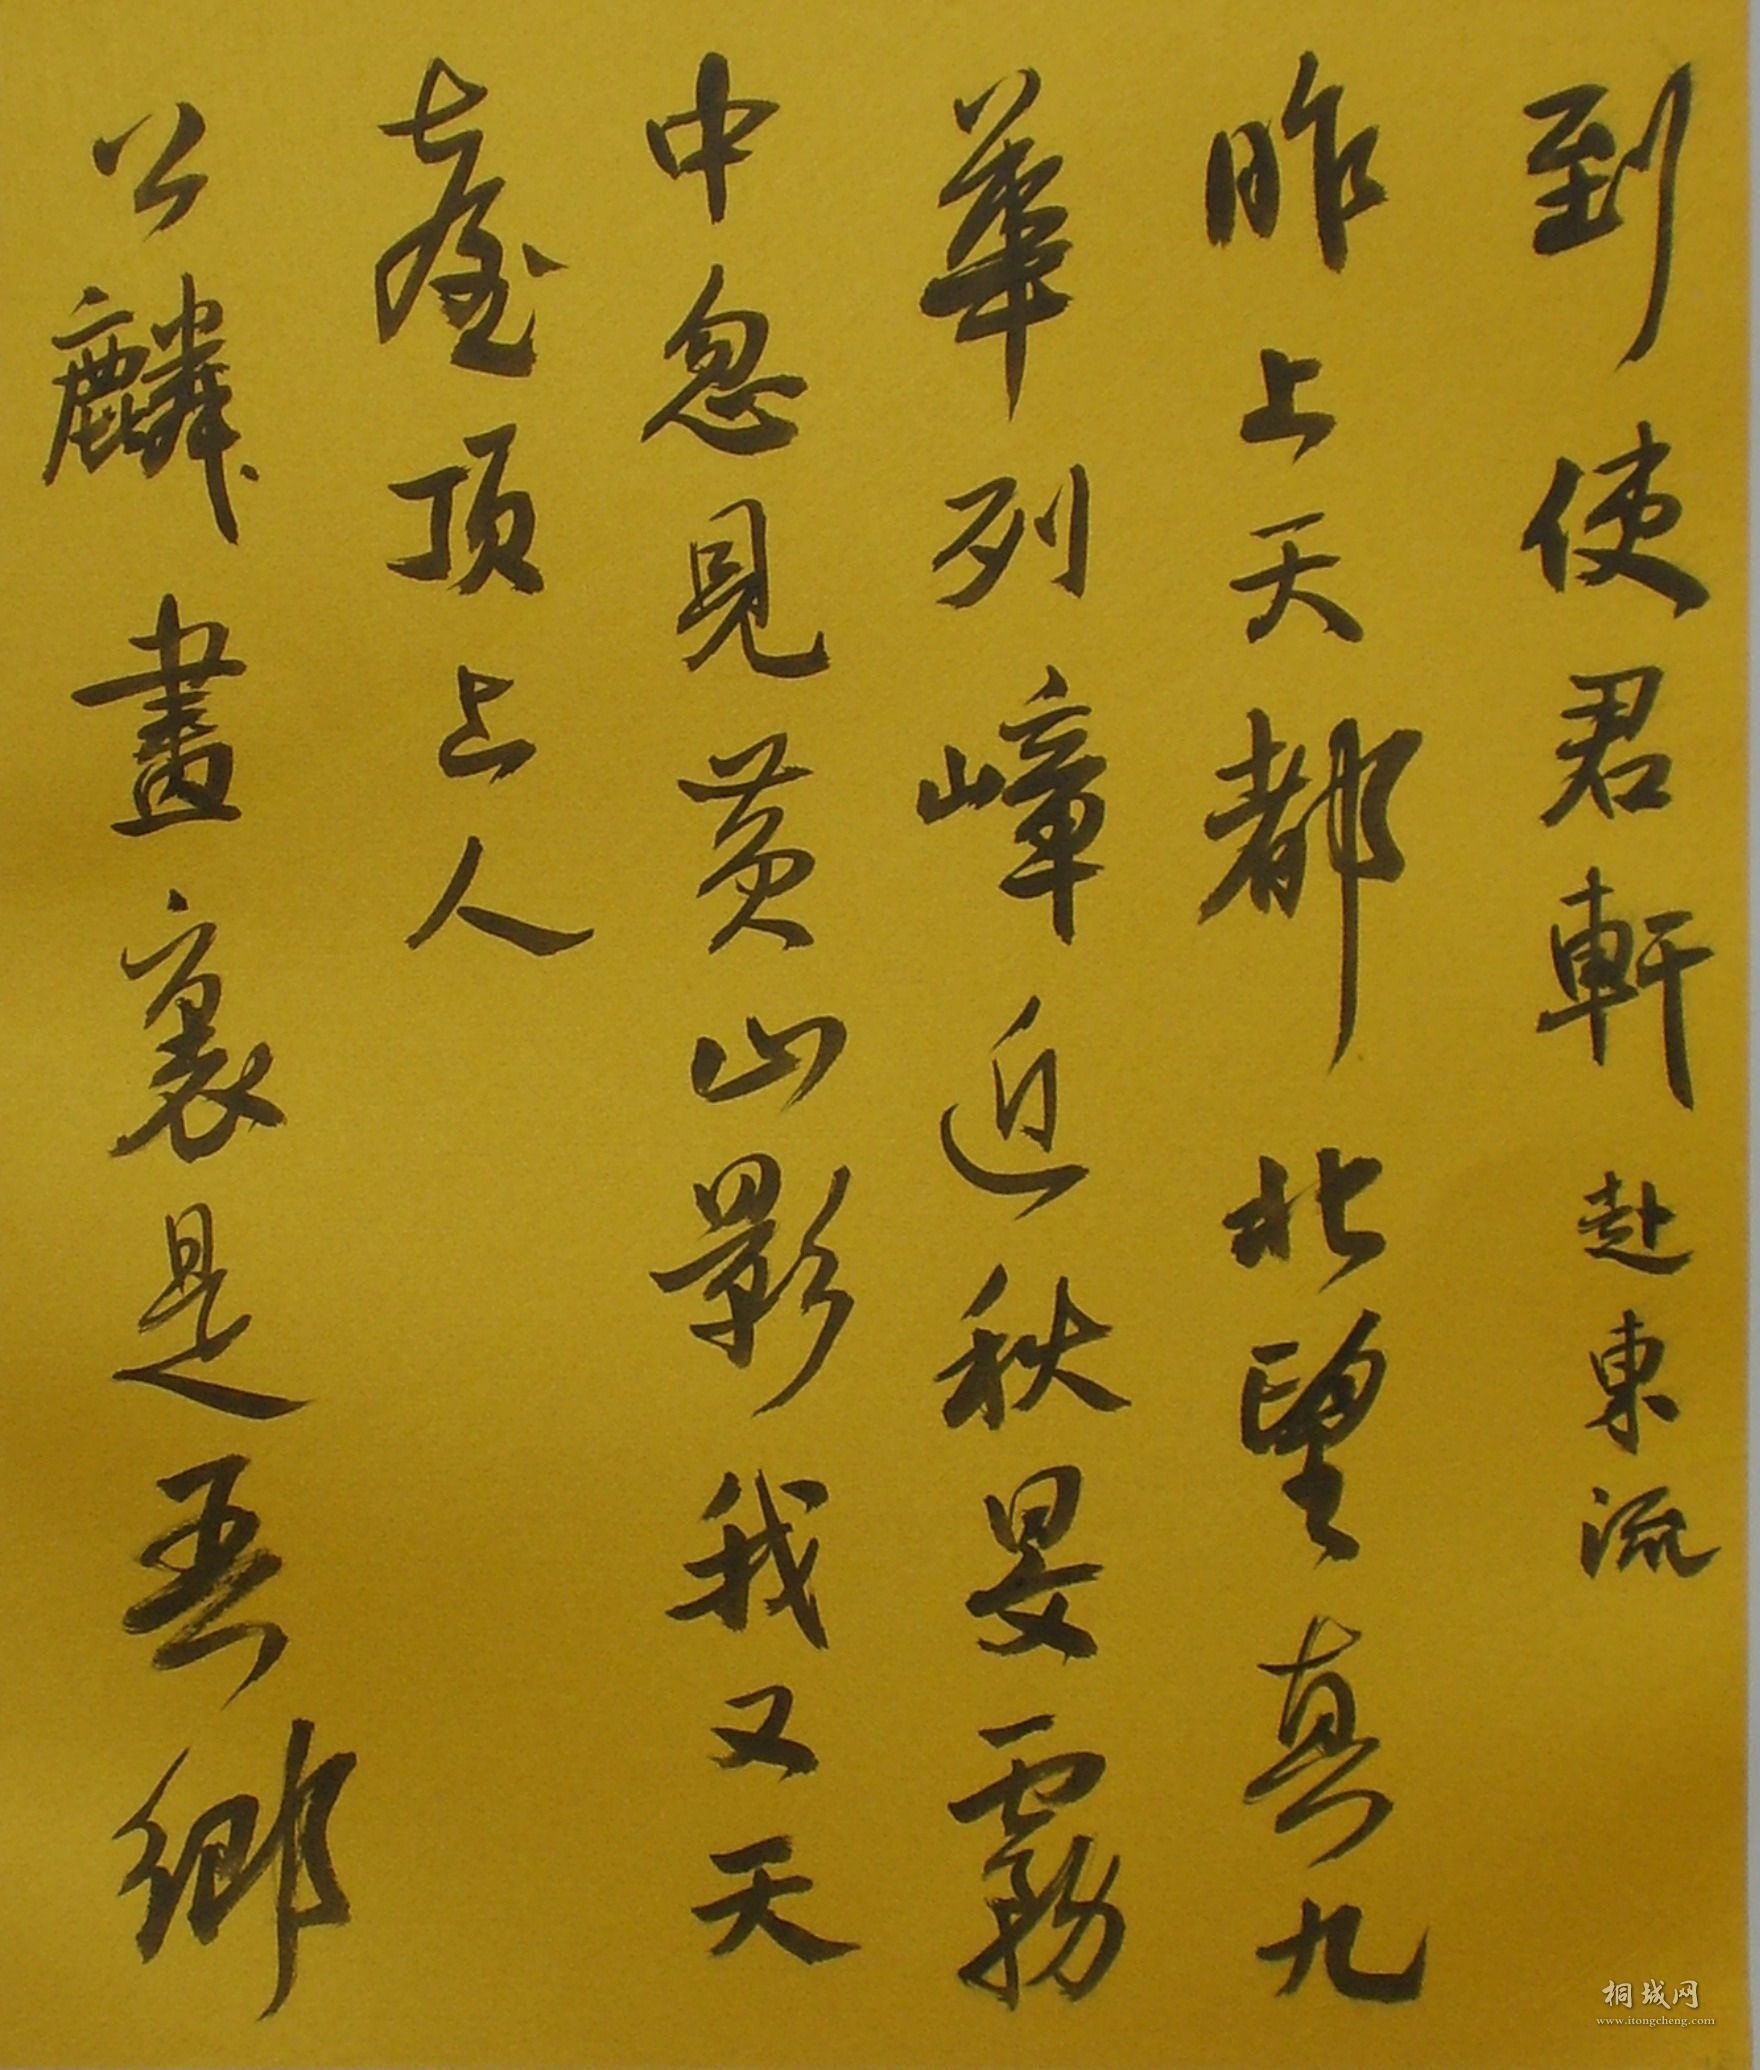 到使君軒赴東流
昨上天都北望真九
華列嶂近秋旻霧
中忽見黄山影我又天
臺顶上人
公麟畫裏是吾鄉
桐城网
www.itongcheng.com